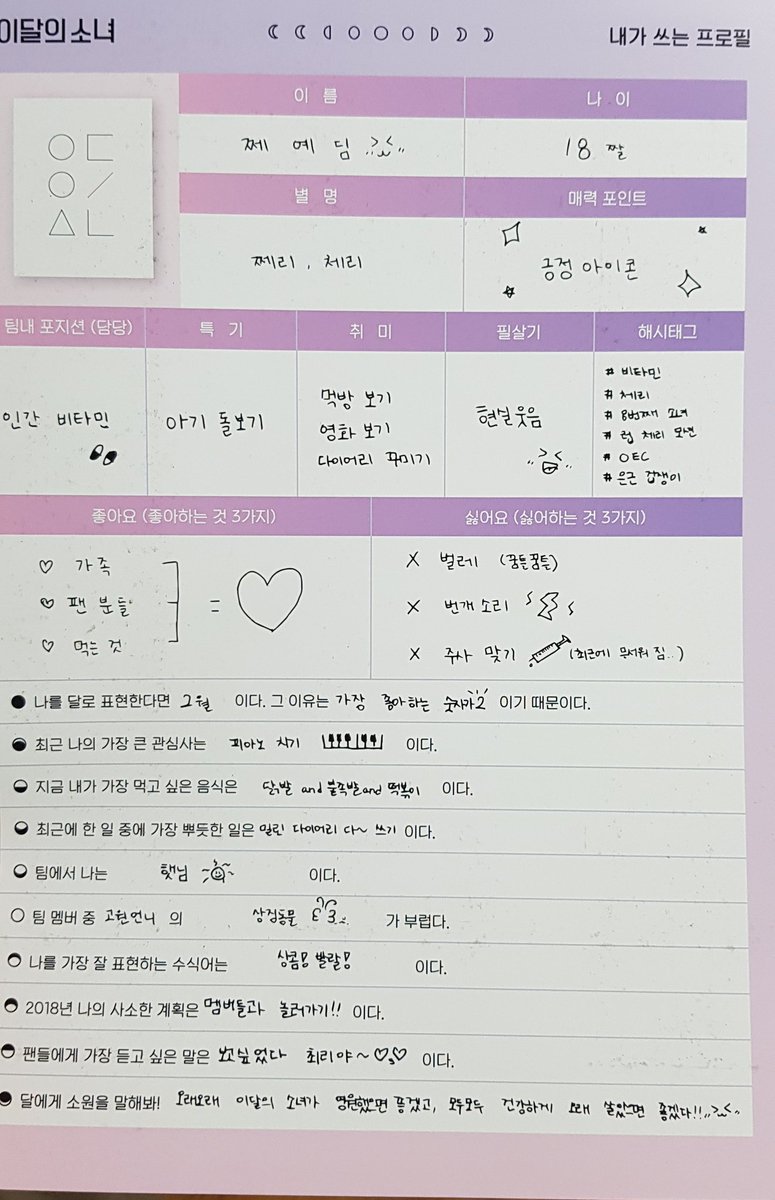 이달의 소녀
내가 쓰는 프로필
이 름
나 이
쩨 예 딤
18 짤
별 명
매력 포인트
쩨리, 체리
긍정 아이콘
팀내 포지션 (담당)
특 기
취 미
필살기
해시태그
인간 비타민
아기 돌보기
먹방 보기
영화 보기
다이어리 꾸미기
현실웃음
# 비타민
# 체리
# 8번째 소녀
# 럽 체리 모션
# OEC
# 은근 겁쟁이
좋아요 (좋아하는 것 3가지)
싫어요 (싫어하는 것 3가지)
♡ 가족
♡ 팬 분들
♡ 먹는 것
= ♡
X 벌레 (꿈틀꿈틀)
X 번개 소리
X 주사 맞기 (최근에 무서워 짐..)
나를 달로 표현한다면 2월 이다. 그 이유는 가장 좋아하는 숫자가 2 이기 때문이다.
최근 나의 가장 큰 관심사는 피아노 치기 이다.
지금 내가 가장 먹고 싶은 음식은 닭발 and 불족발 and 떡볶이 이다.
최근에 한 일 중에 가장 뿌듯한 일은 밀린 다이어리 다~ 쓰기 이다.
팀에서 나는 햇님 이다.
팀 멤버 중 고원언니 의 상징동물 가 부럽다.
나를 가장 잘 표현하는 수식어는 상콤! 발랄! 이다.
2018년 나의 사소한 계획은 멤버들과 놀러가기!! 이다.
팬들에게 가장 듣고 싶은 말은 보고싶었다 최리야~♡♡ 이다.
달에게 소원을 말해봐! 오래오래 이달의 소녀가 영원했으면 좋겠고, 모두모두 건강하게 오래 살았으면 좋겠다!!